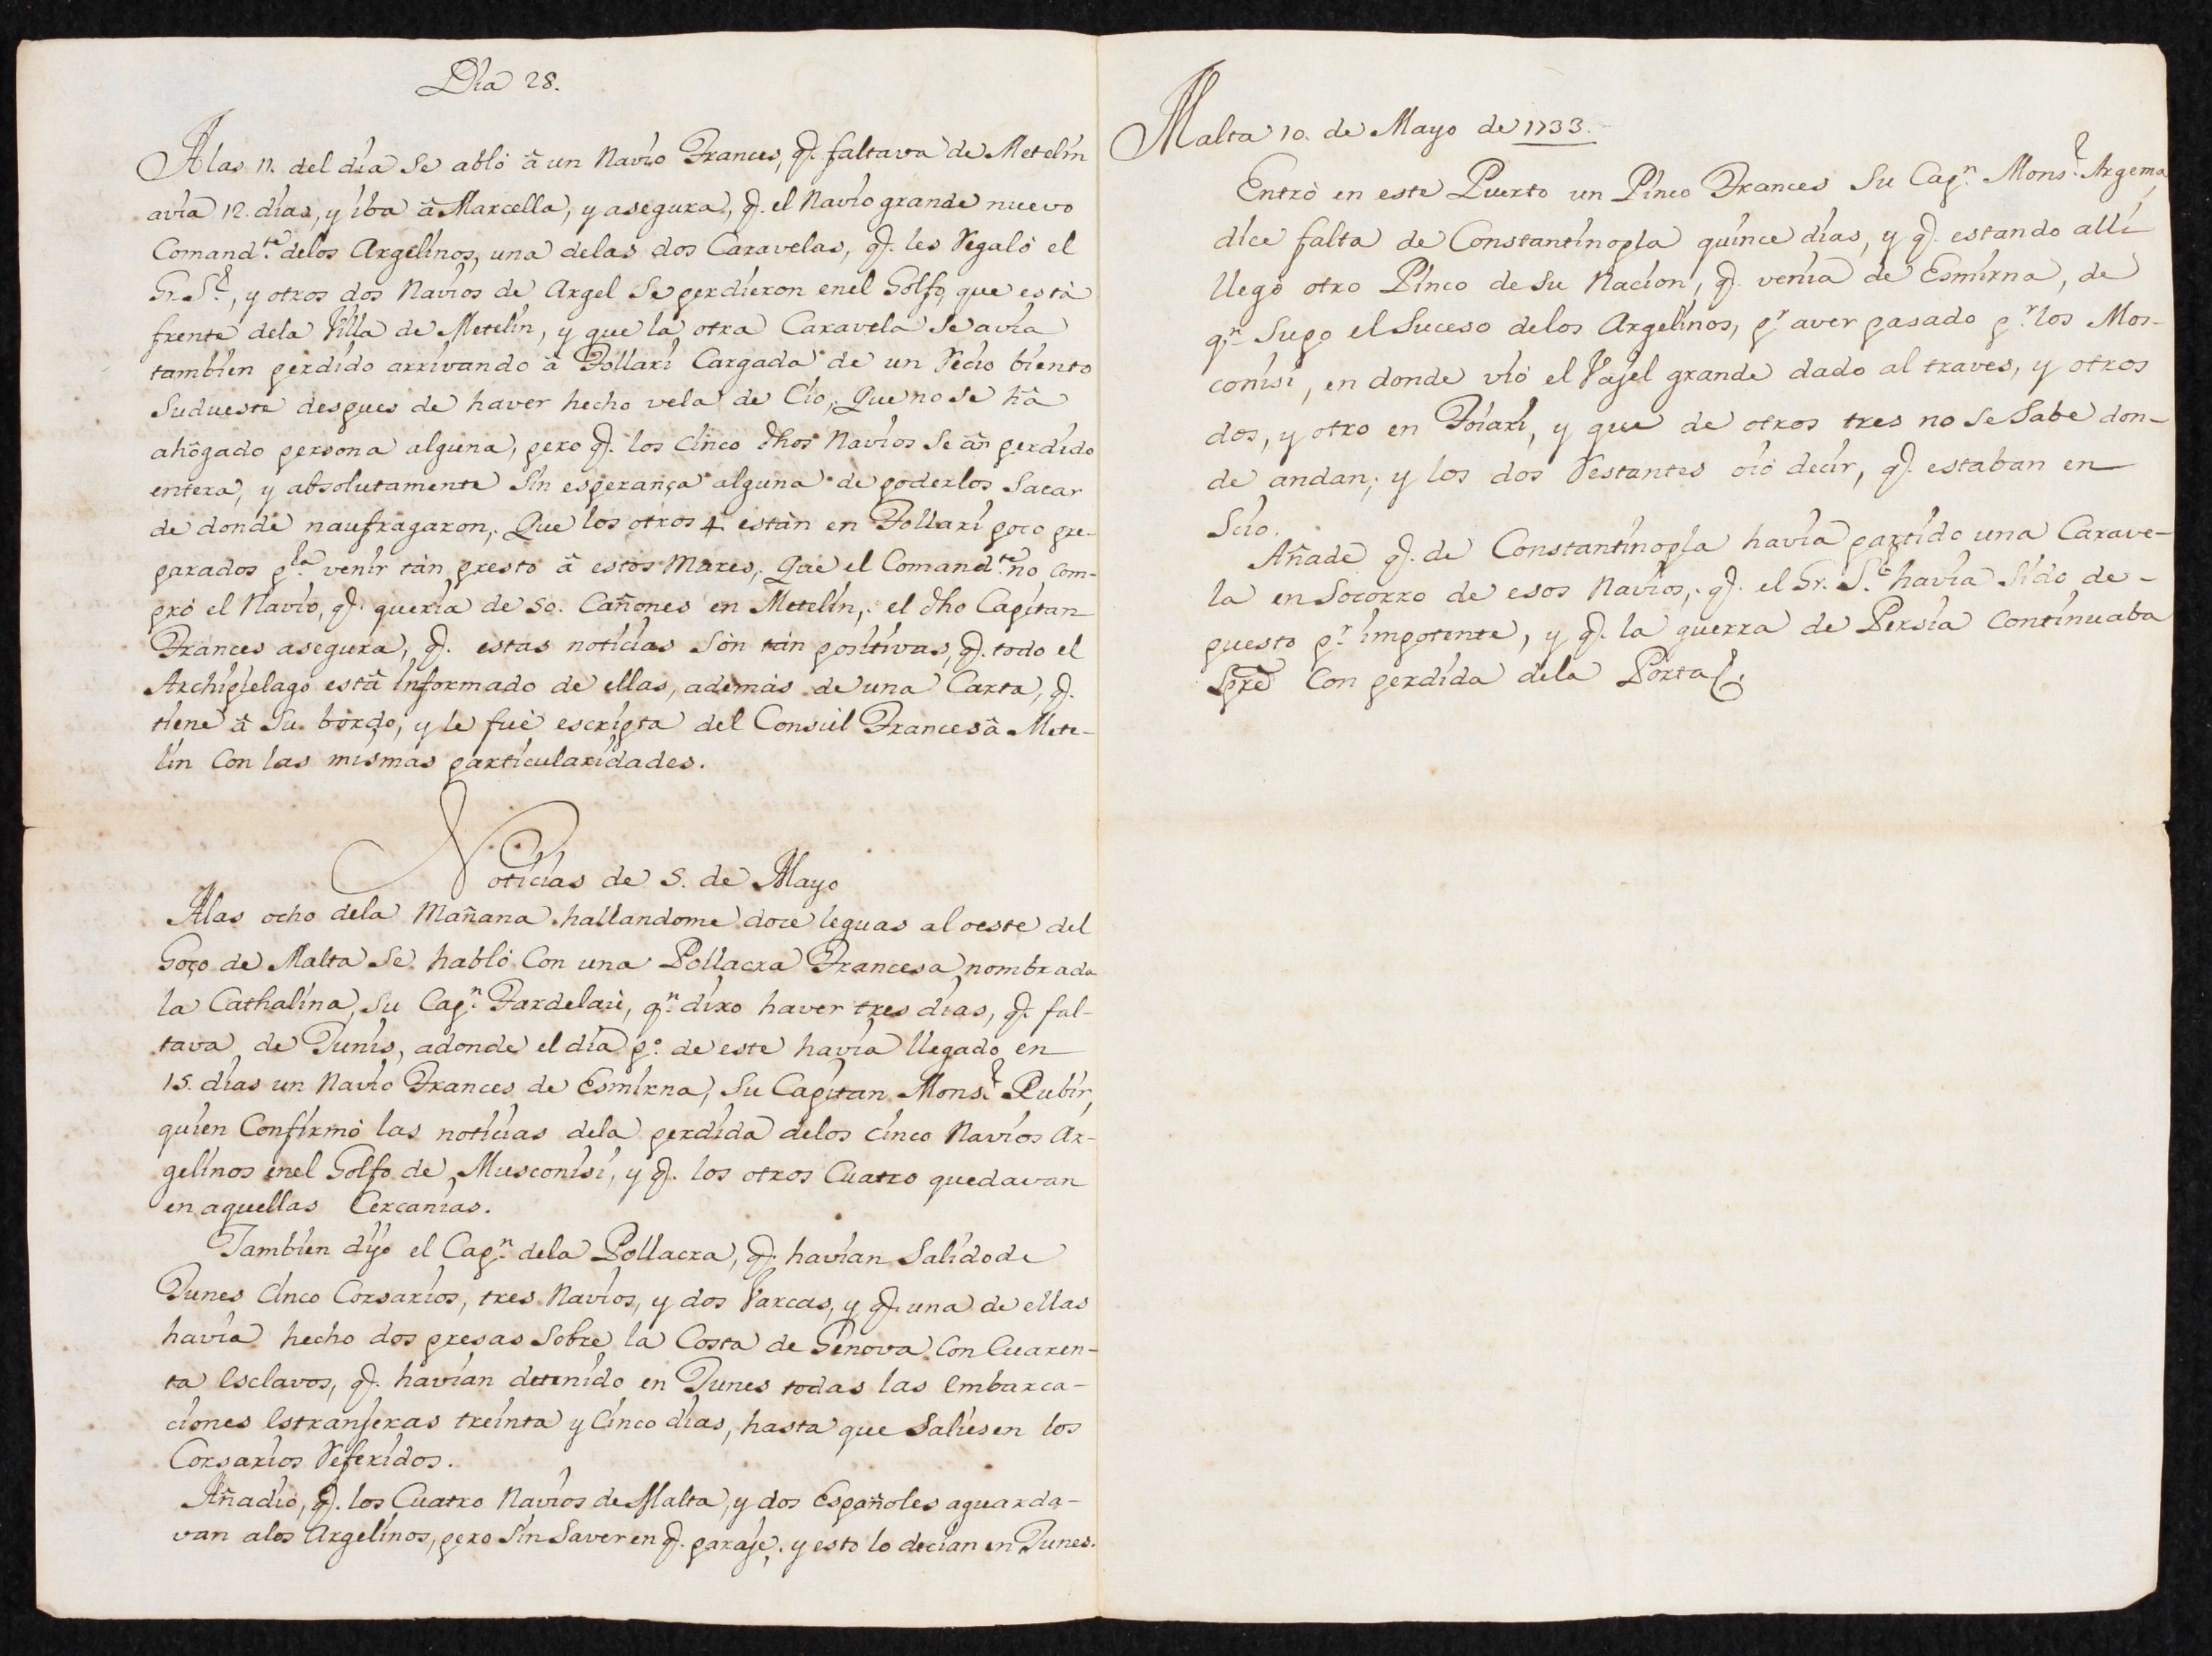 Dia 28.
A las 11. del dia se abló â un Navio Frances, q̃. faltava de Metelin
avia 12. dias, y iba â Marcella, y asegura, q̃. el Navio grande nuevo
Comand.te delos Argelinos, una delas dos Caravelas, q̃. les Regalò el
Gr. S.r, y otros dos Navios de Argel se perdieron enel Golfo, que està
frente dela Villa de Metelin, y que la otra Caravela se avia
tambien perdido arrivando â Follari Cargada de un Recio biento
Sudueste despues de haver hecho vela de Cio; Que no se hâ
ahôgado persona alguna, pero q̃. los Cinco dhos Navios se ân perdido
entera, y absolutamente sin esperança alguna de poderlos Sacar
de donde naufragaron; Que los otros 4 estàn en Follari poco pre-
parados p.la venir tàn presto â estos Mares; Que el Comand.te no com-
prò el Navio, q̃. queria de 50. Cañones en Metelin; el dho Capitan
Frances asegura, q̃. estas noticias sòn tàn positivas, q̃. todo el
Archipielago estâ informado de ellas, ademàs de una Carta, q̃.
tiene â su bordo, y le fuè escripta del Consùl Frances â Mete-
lin con las mismas particularidades.
Noticias de 5. de Mayo
A las ocho dela Mañana hallandome doce leguas al oeste del
Goço de Malta se hablò Con una Pollacra Francesa nombrada
la Cathalina, su Cap.n Fardelaù, q.n dixo haver tres dias, q̃. fal-
tava de Tunis, adonde el dia p.o de este havia llegado en
15. dias un Navio Frances de Esmirna, su Capitan Mons.r Rubir,
quien Confirmò las noticias dela perdida delos cinco Navios Ar-
gelinos enel Golfo de Musconisi, y q̃. los otros Cuatro quedavan
en aquellas Cercanias.
Tambien dijo el Cap.n dela Pollacra, q̃. havian Salido de
Tunes Cinco Corsarios, tres Navios, y dos Varcas, y q̃. una de ellas
havia hecho dos presas sobre la Costa de Genova con Cuaren-
ta esclavos, q̃. havian detenido en Tunes todas las embarca-
ciones estranjeras treinta y Cinco dias, hasta que Saliesen los
Corsarios Referidos.
Añadiò, q̃. los Cuatro Navios de Malta, y dos Españoles aguarda-
van alos Argelinos, pero sin Saver en q̃. paraje; y esto lo decian en Tunes.
Malta 10. de Mayo de 1733.
Entrò en este Puerto un Pinco Frances su Cap.n Mons.r Argema,
dice falta de Constantinopla quince dias, y q̃. estando alli
llegò otro Pinco de su Nacion, q̃. venia de Esmirna, de
q.n Supo el Suceso delos Argelinos, p.r aver pasado p.r los Mos-
conisi, en donde viò el Vajel grande dado al traves, y otros
dos, y otro en Foiari, y que de otros tres no se Sabe don-
de andan; y los dos Restantes oiò decir, q̃. estaban en
Scio.
Añade q̃. de Constantinopla havia partido una Carave-
la en Socorro de esos Navios; q̃. el Gr. S.r havia sido de-
puesto p.r impotente, y q̃. la guerra de Persia Continuaba
Spre con perdida dela Porta